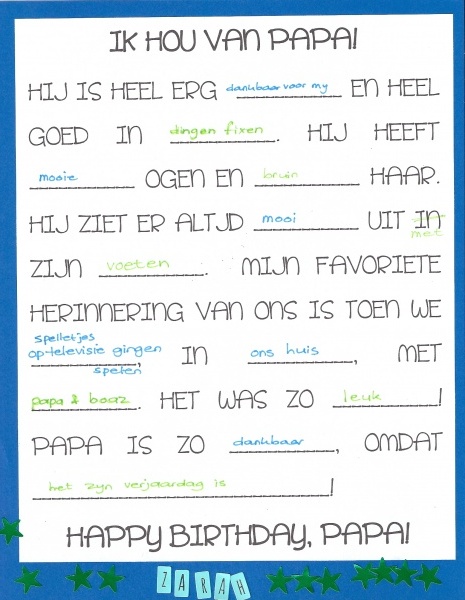 IK HOU VAN PAPA!
HIJ IS HEEL ERG dankbaar voor my EN HEEL
GOED IN dingen fixen. HIJ HEEFT
mooie OGEN EN bruin HAAR.
HIJ ZIET ER ALTJD mooi UIT IN
met
ZIJN voeten. MIJN FAVORIETE
HERINNERING VAN ONS IS TOEN WE
spelletjes
op televisie gingen, IN ons huis, MET
spelen
papa & boaz. HET WAS ZO leuk!
PAPA IS ZO dankbaar, OMDAT
het zyn verjaardag is!
HAPPY BIRTHDAY, PAPA!
ZARAH